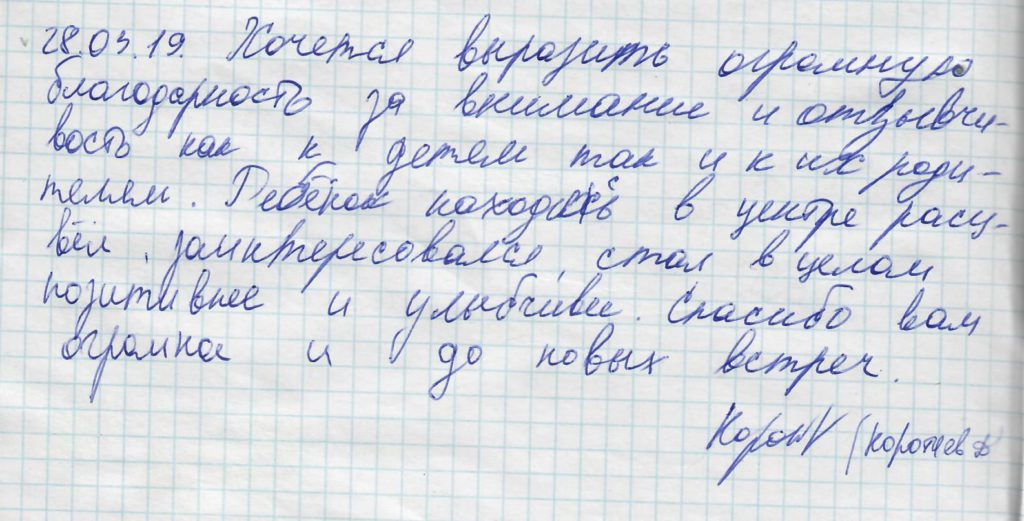 28.03.19. Хочется выразить огромную
благодарность за внимание и отзывчи-
вость как к детям так и к их роди-
телям. Ребёнок находясь в центре расц-
вёл, заинтересовался, стал в целом
позитивнее и улыбчивее. Спасибо вам
огромное и до новых встреч.